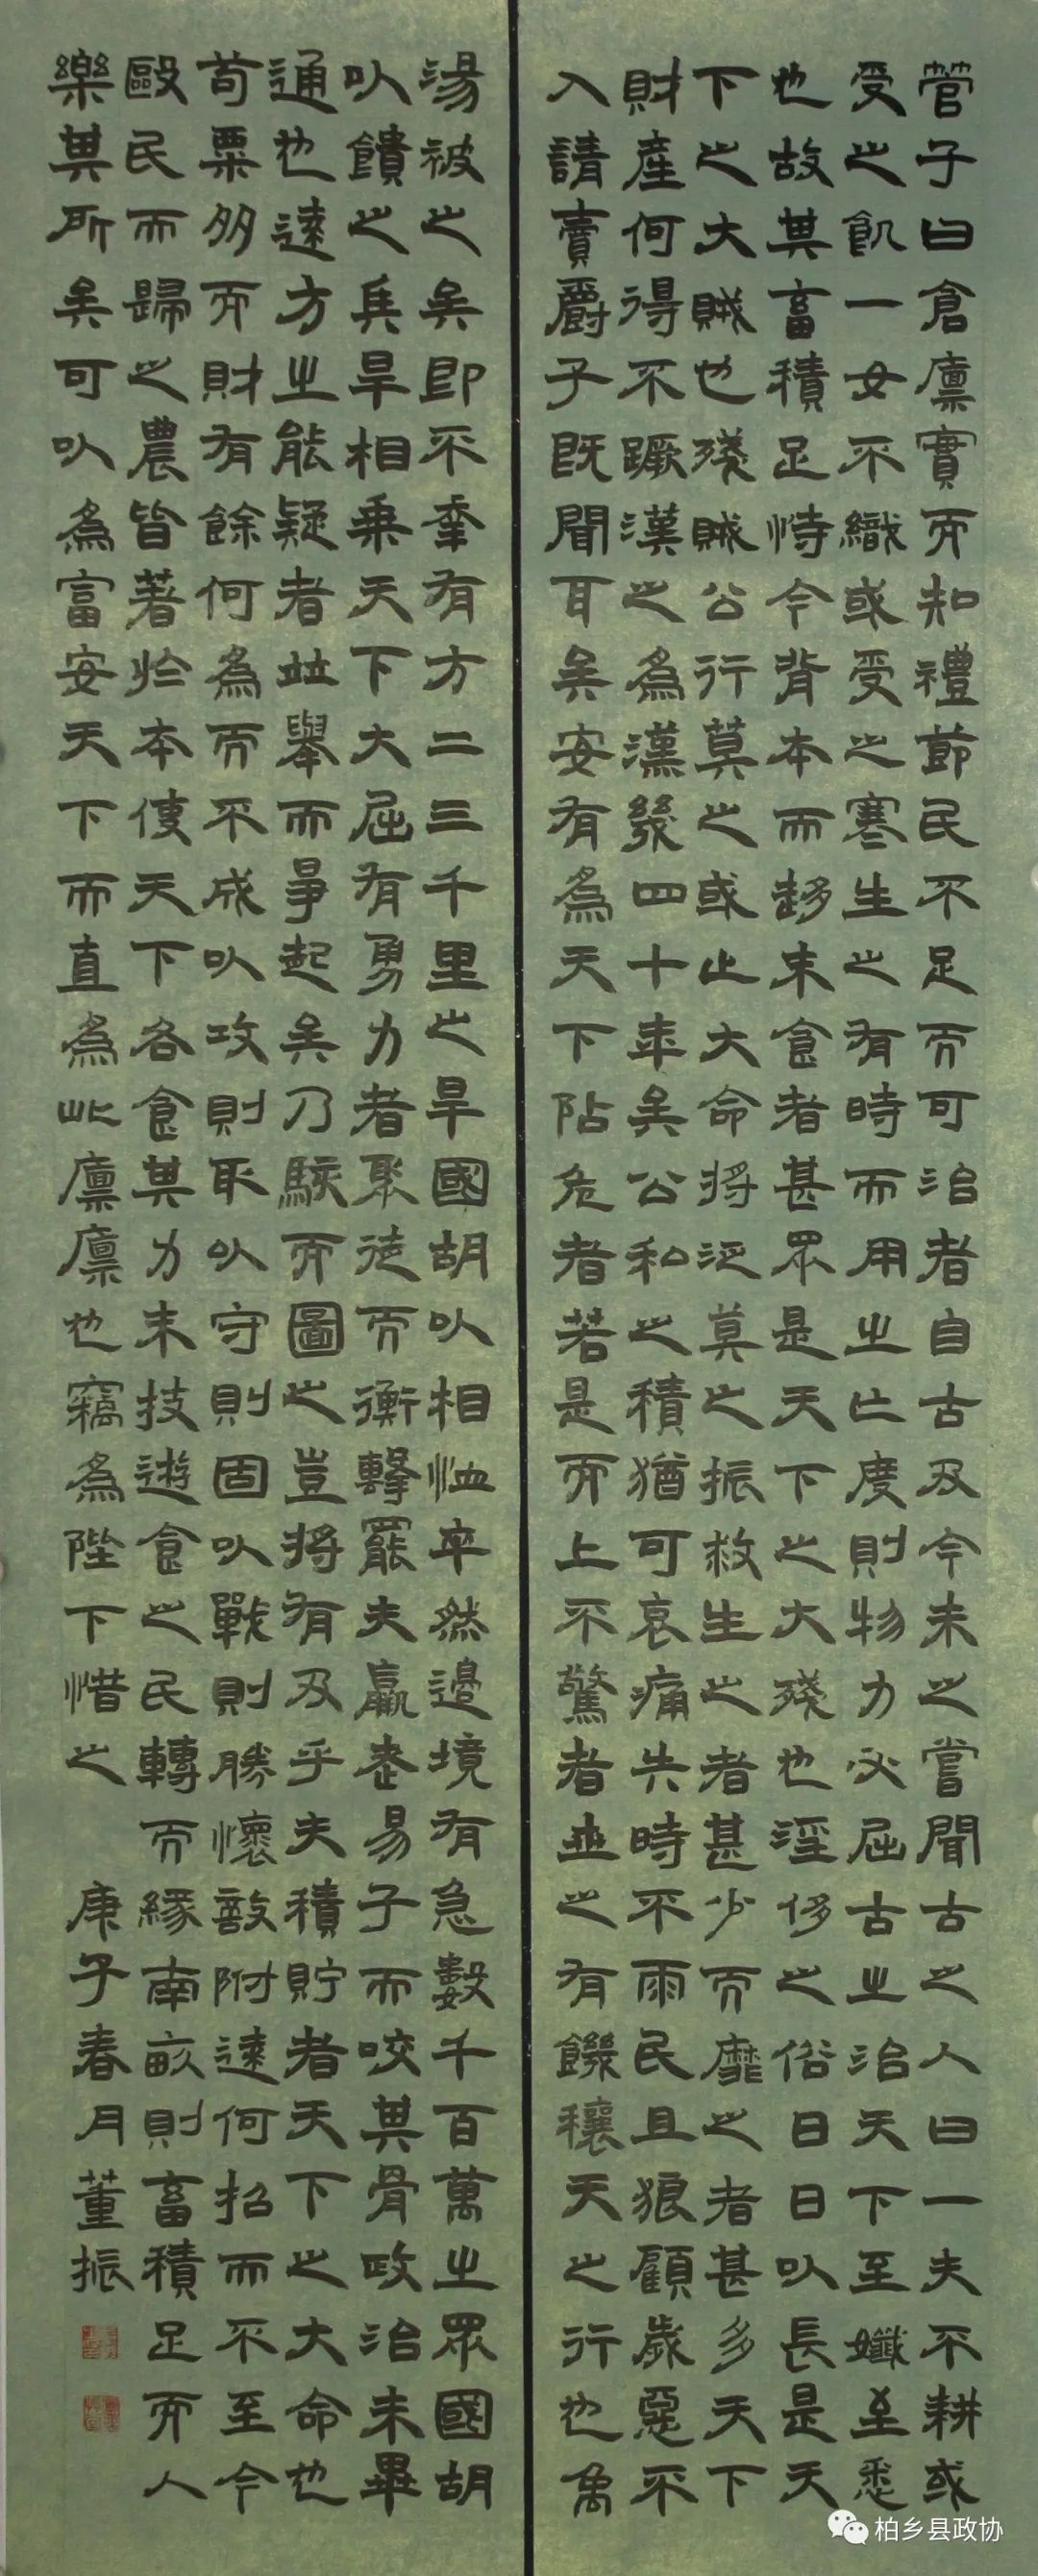 管子曰倉廩實而知禮節民不足而可治者自古及今未之嘗聞古之人曰一夫不耕或
受之飢一女不織或受之寒生之有時而用之亡度則物力必屈古之治天下至孅至悉
也故其畜積足恃今背本而趨末食者甚眾是天下之大殘也淫侈之俗日日以長是天
下之大賊也殘賊公行莫之或止大命將泛莫之振救生之者甚少而靡之者甚多天下
財產何得不蹶漢之為漢幾四十年矣公私之積猶可哀痛失時不雨民且狼顧歲惡不
入請賣爵子既聞耳矣安有為天下阽危者若是而上不驚者世之有饑穰天之行也禹
湯被之矣即不幸有方二三千里之旱國胡以相恤卒然邊境有急數千百萬之眾國胡
以饋之兵旱相乘天下大屈有勇力者聚徒而衡擊罷夫羸老易子而咬其骨政治未畢
通也遠方之能疑者並舉而爭起矣乃駭而圖之豈將有及乎夫積貯者天下之大命也
苟粟多而財有餘何為而不成以攻則取以守則固以戰則勝懷敵附遠何招而不至今
毆民而歸之農皆著於本使天下各食其力末技遊食之民轉而緣南畝則畜積足而人
樂其所矣可以為富安天下而直為此廩廩也竊為陛下惜之 庚子春月董振
柏乡县政协